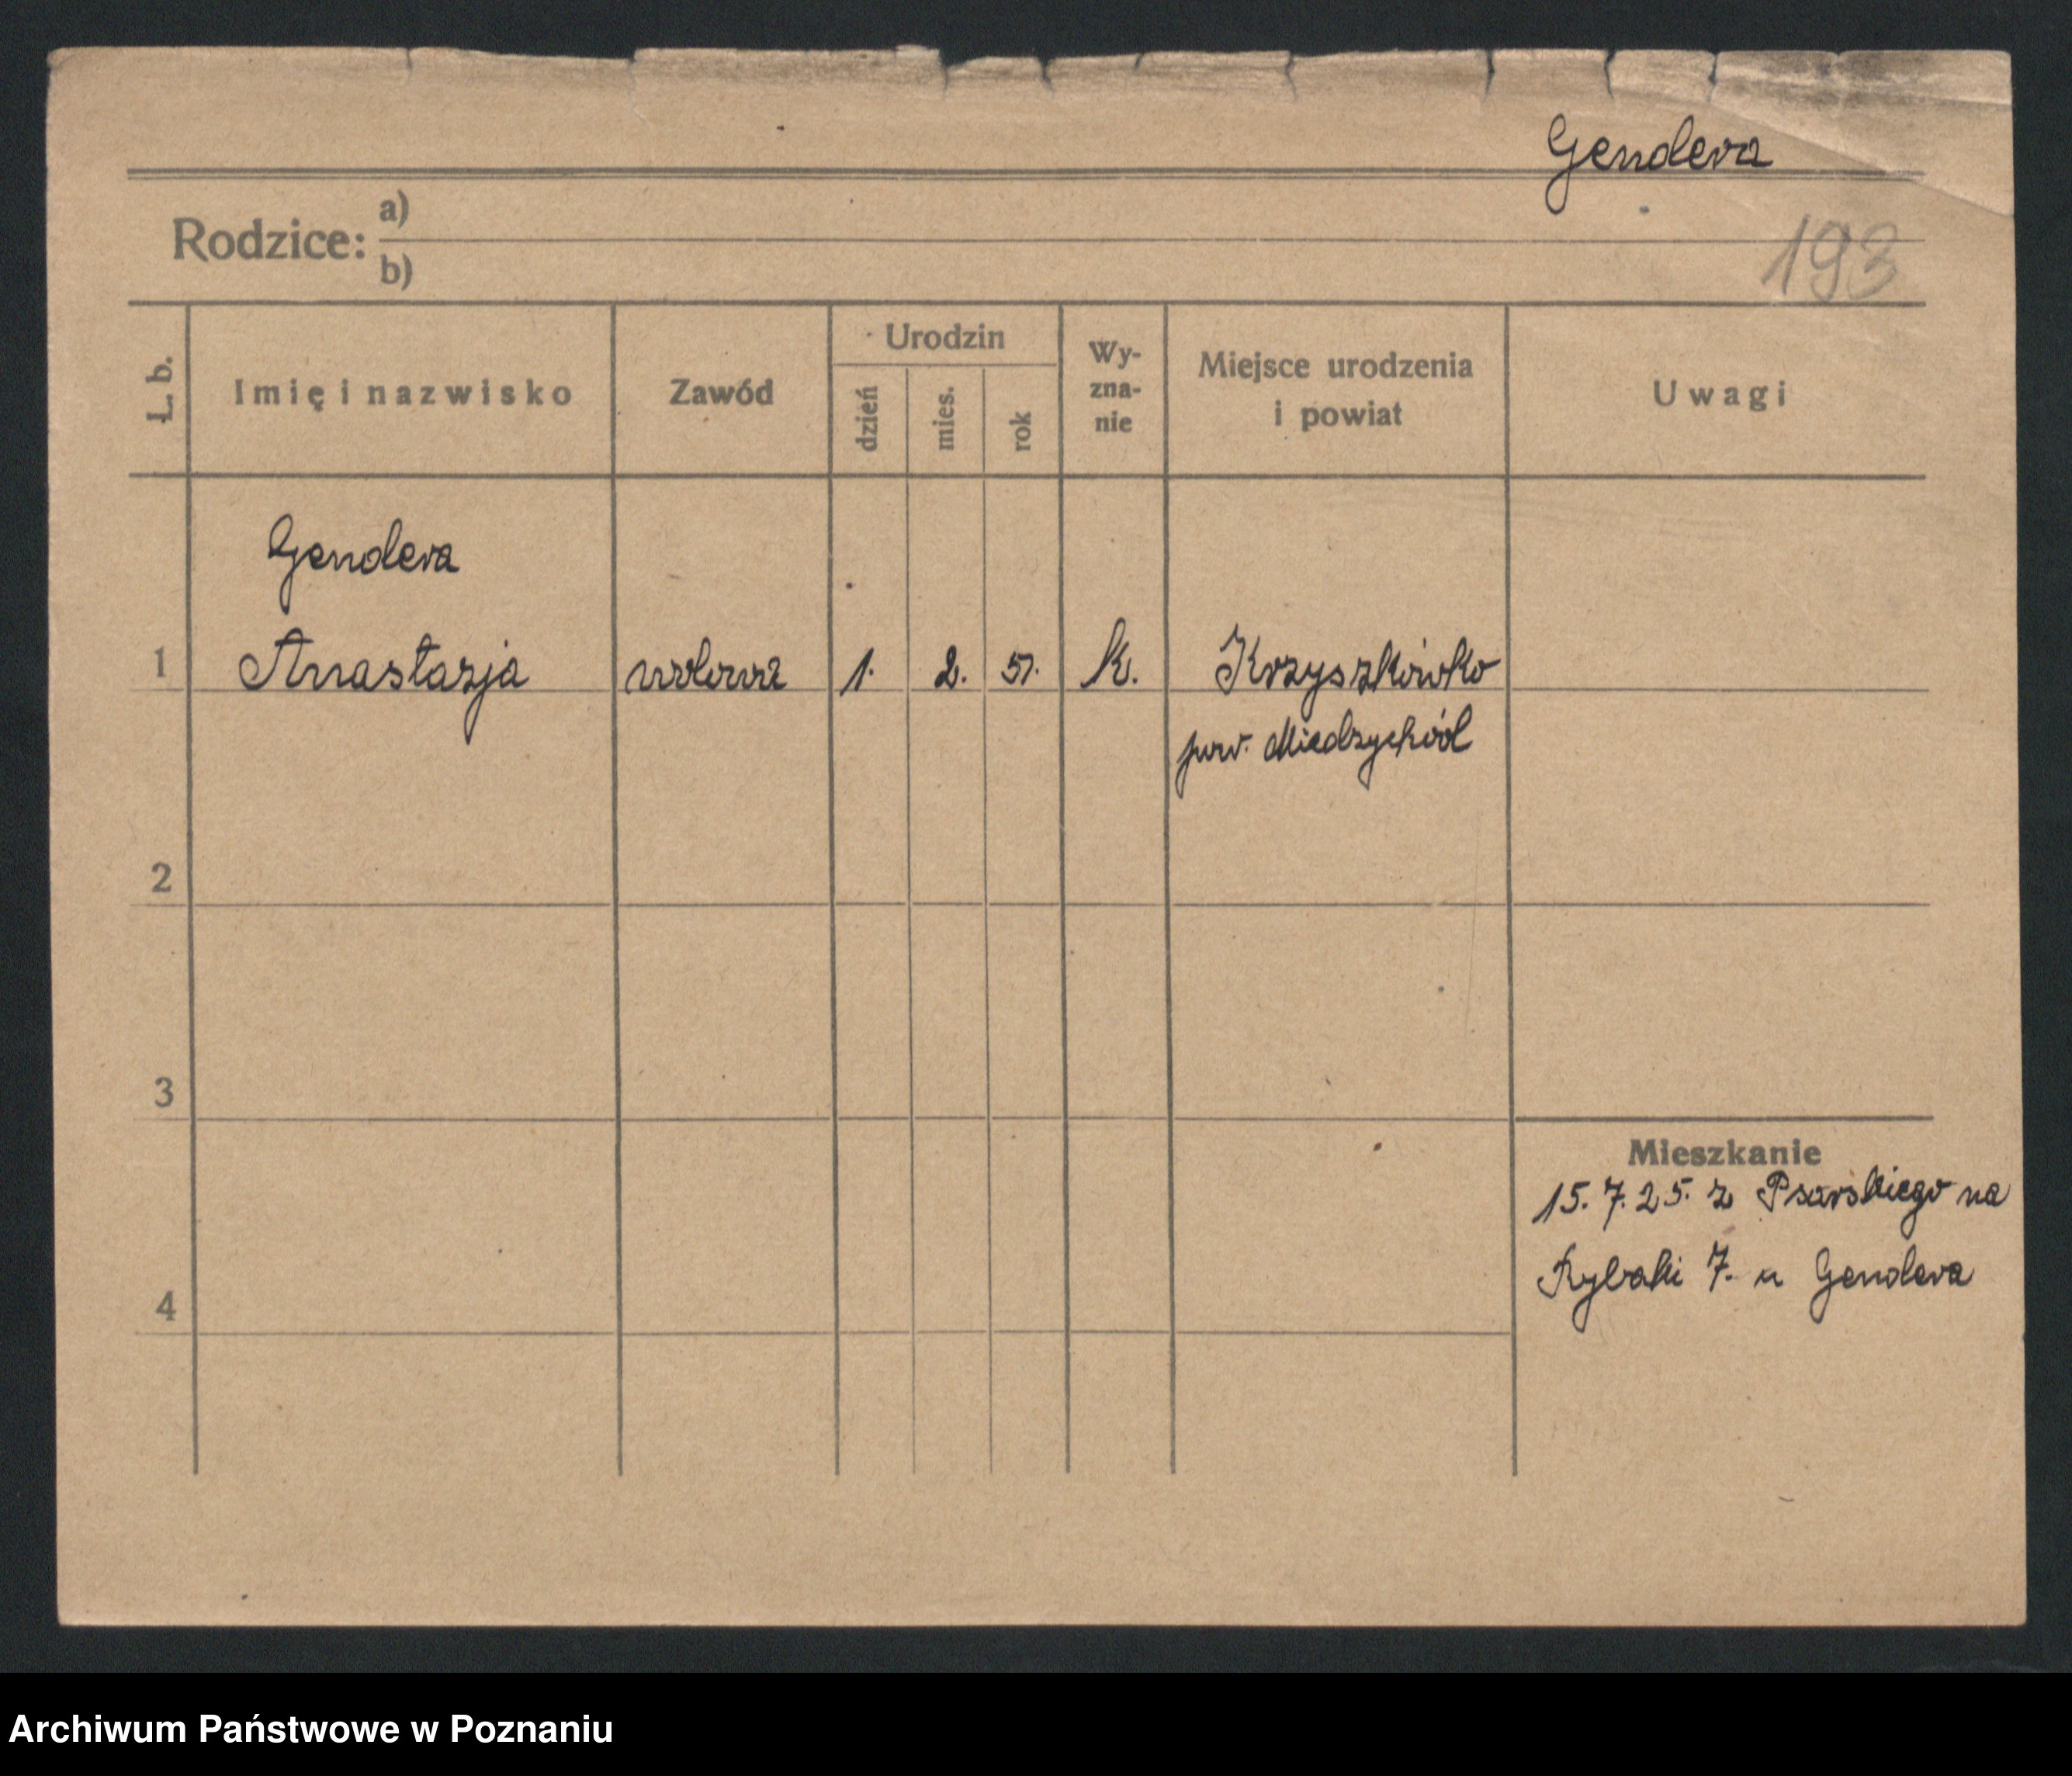 Gendera
Rodzice: a)
b)
193
Ł. b.
Imię i nazwisko
Zawód
Urodzin
dzień
mies.
rok
Wy-
zna-
nie
Miejsce urodzenia
i powiat
Uwagi
Gendera
1 Anastazja wdowa 1. 2. 51. k. Krzyszkówko
pow. Miedzychód
2
3
Mieszkanie
15. 7. 25. z Psarskiego na
Rybaki 7. u Gendera
4
Archiwum Państwowe w Poznaniu